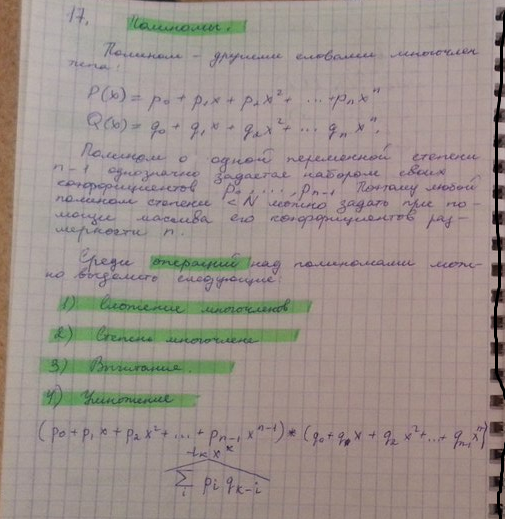 17. Полиномы.
Полином - другими словами многочлен
типа:
P(x) = p₀ + p₁x + p₂x² + ... + pₙxⁿ
Q(x) = q₀ + q₁x + q₂x² + ... qₙxⁿ.
Полином о одной переменной степени
n-1 однозначно задаётся набором своих
коэффициентов p₀, ..., pₙ₋₁ Поэтому любой
полином степени < N можно задать при по-
мощи массива его коэффициентов раз-
мерности n.
Среди операций над полиномами мож-
но выделить следующие:
1) Сложение многочленов
2) Степень многочлена
3) Вычитание.
4) Умножение
(p₀ + p₁x + p₂x² + ... + pₙ₋₁xⁿ⁻¹) * (q₀ + q₁x + q₂x² + ... + qₙ₋₁xⁿ)
∑ᵢ pᵢ qₖ₋ᵢ